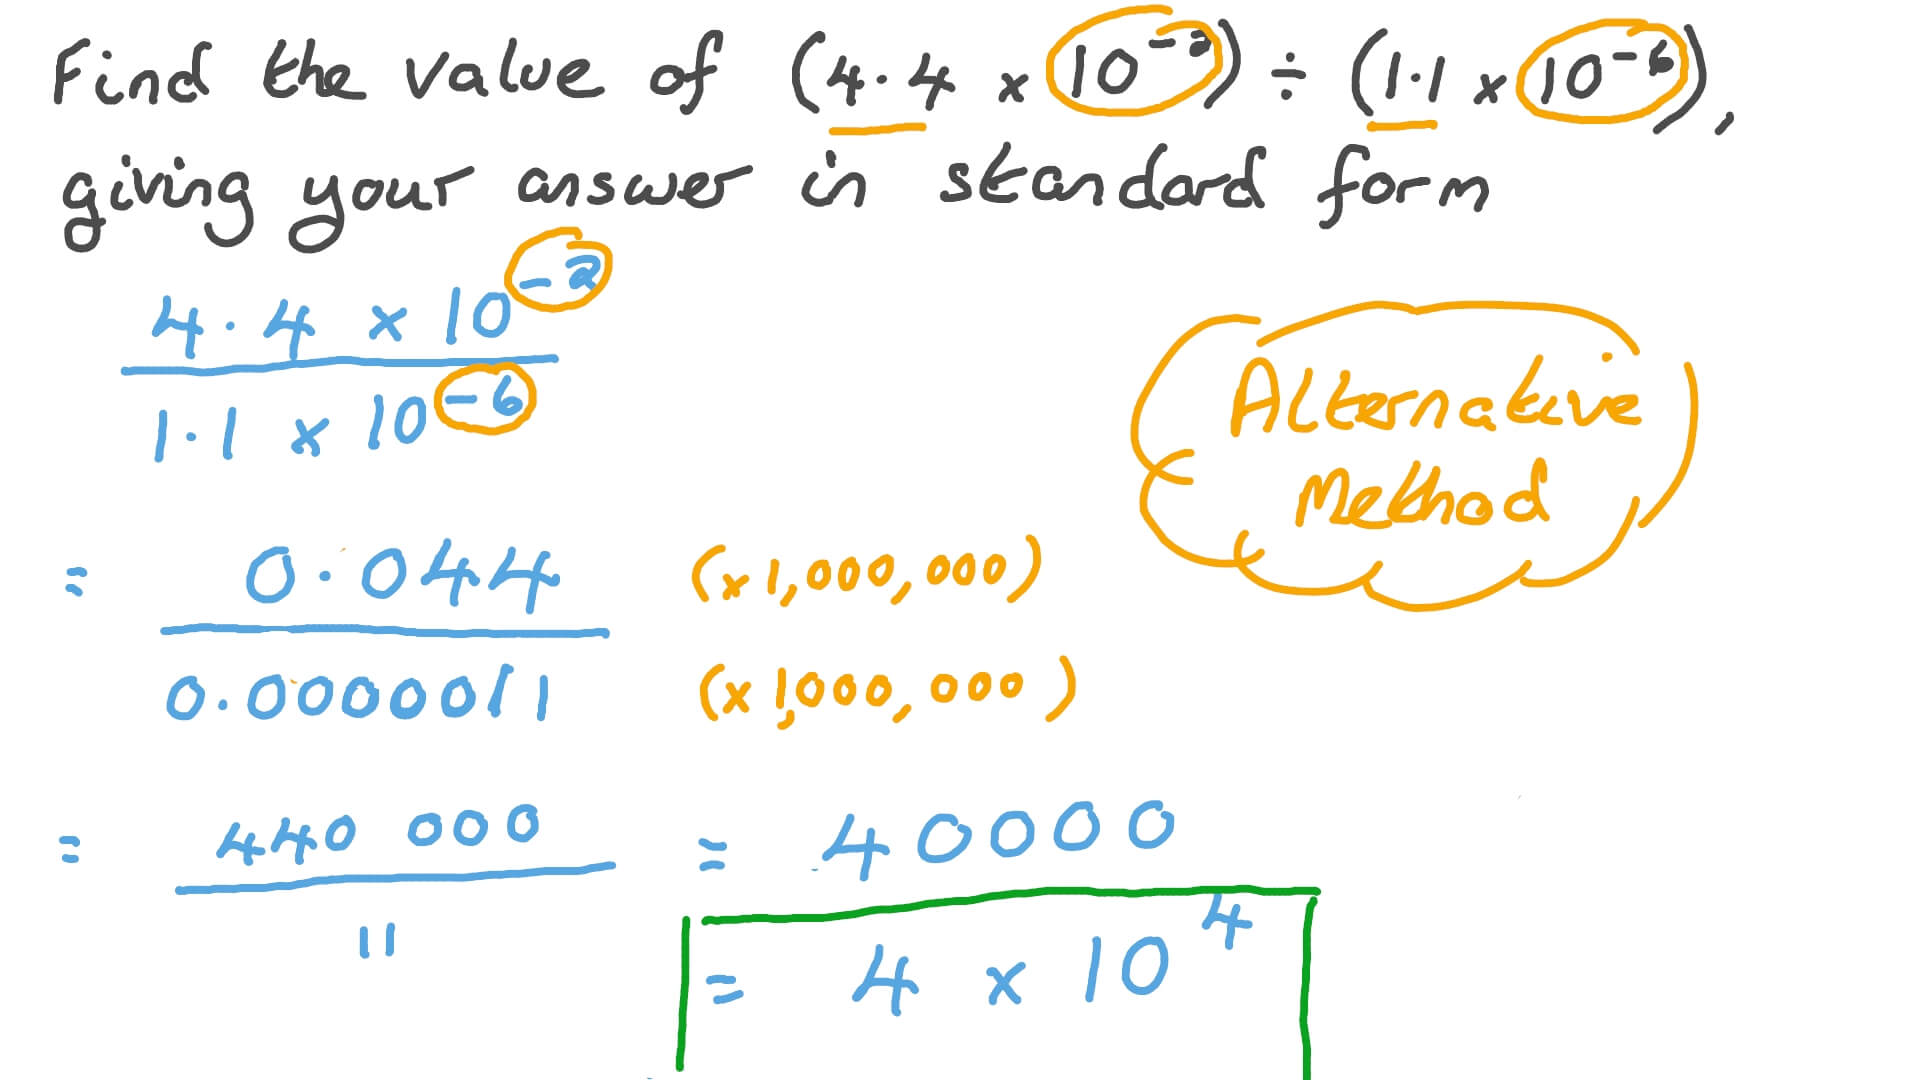 Find the value of (4.4 × 10⁻²) ÷ (1.1 × 10⁻⁶),
giving your answer in standard form
4.4 × 10⁻²
1.1 × 10⁻⁶
Alternative
Method
= 0.044 (× 1,000,000)
0.0000011 (× 1,000,000)
= 440 000 = 40000
11
= 4 × 10⁴